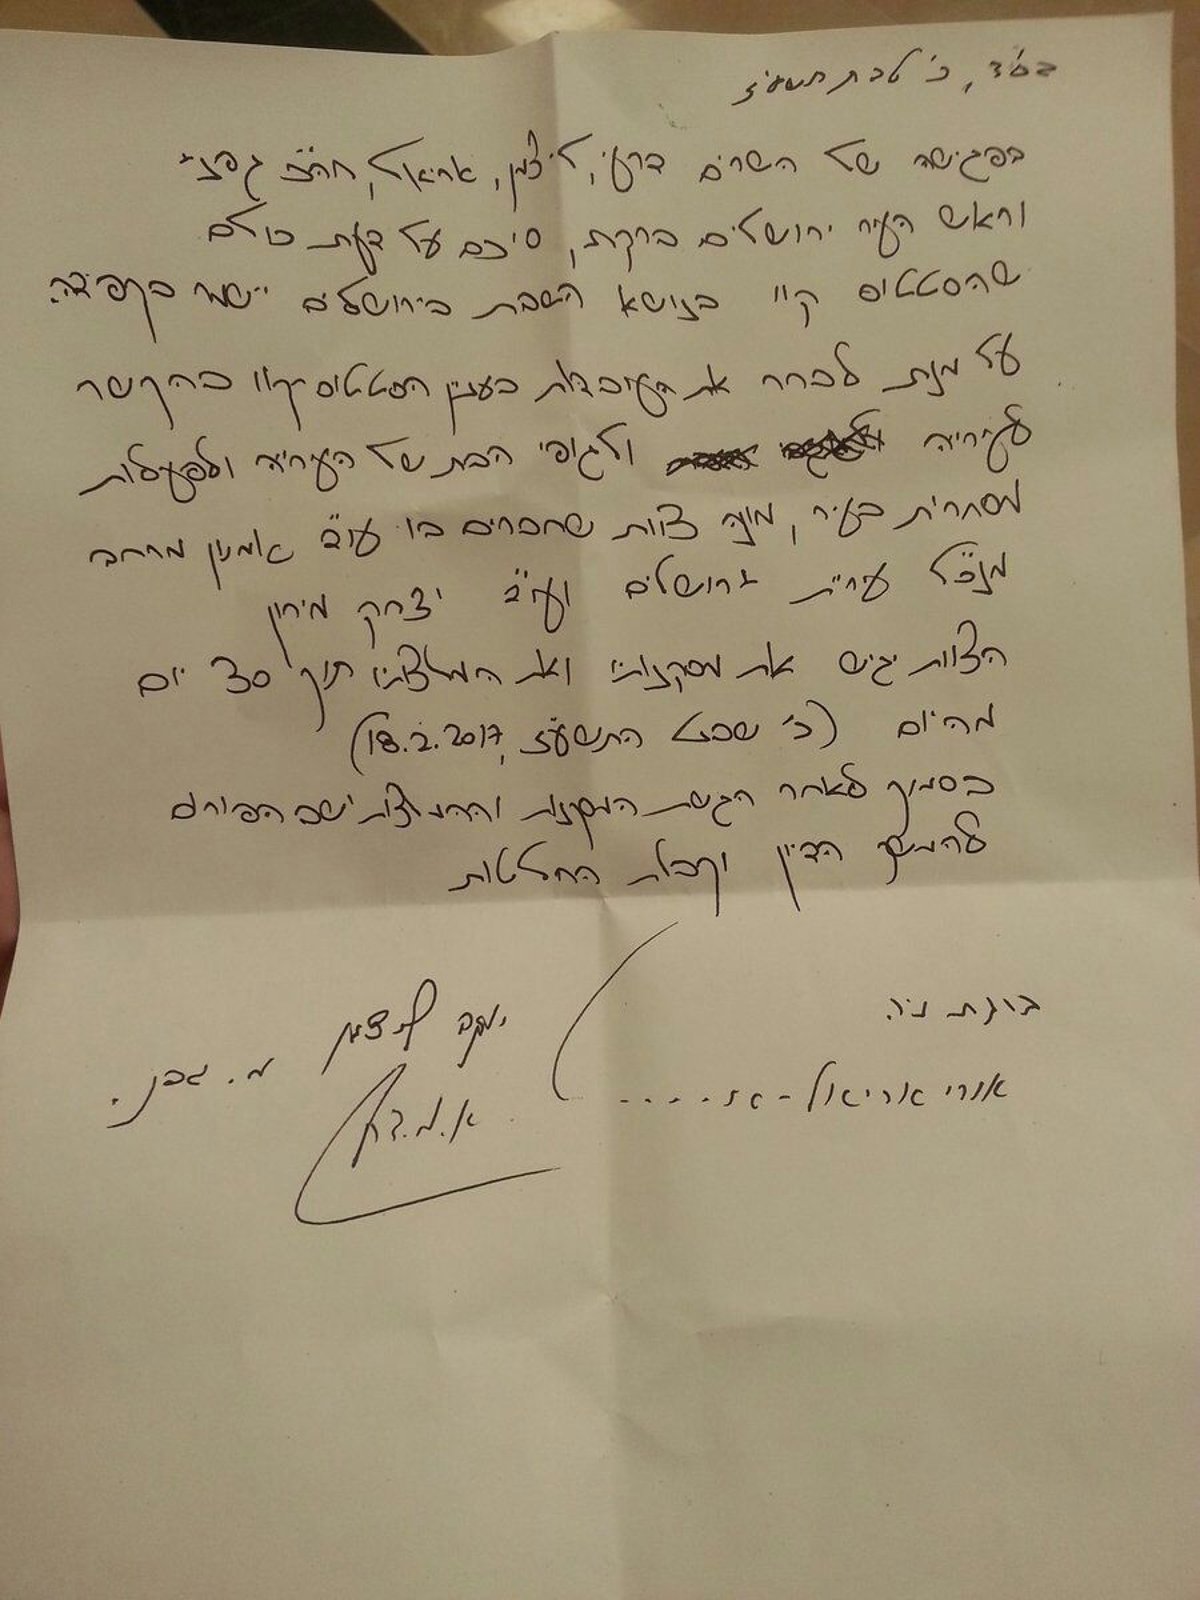 בס"ד, כ' טבת תשע"ז
בפגישה של השרים דרעי, ליצמן, אריאל, חה"כ גפני
וראש העיר ירושלים ברקת, סיכם על דעת כולם
שהסטטוס קוו בנושא השבת בירושלים יישמר בקפידה.
על מנת לברר את העובדות בענין הסטטוס-קוו בהקשר
לעירייה ולגופי הבת של העירייה ולפעילות
מסחרית בעיר, מונה צוות שחברים בו עו"ד אמנון מרחב
מנכ"ל עירית ירושלים ועו"ד יצחק מירון
הצוות יגיש את מסקנותיו ואת המלצותיו תוך 30 יום
מהיום (כ' שבט התשע"ז, 18.2.2017)
בסמוך לאחר הגשת המסקנות וההמלצות ישב הפורום
להמשך הדיון וקבלת החלטות
ברכת ניר.
יעקב ליצמן
מ. גפני.
אורי אריאל -
א.מ.דרעי